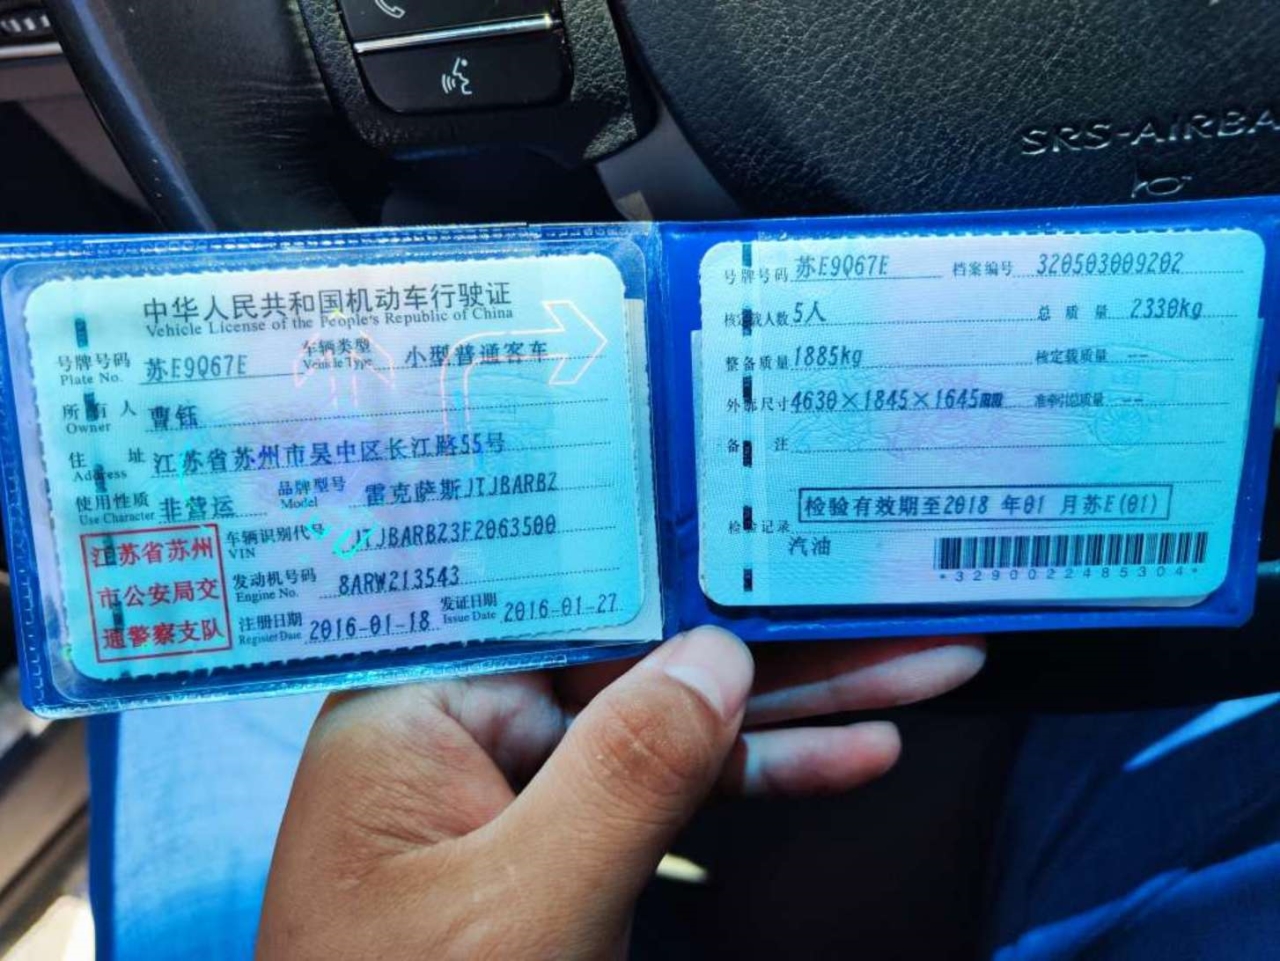 SRS-AIRBA
中华人民共和国机动车行驶证
Vehicle License of the People's Republic of China
号牌号码 苏E9Q67E 车辆类型 小型普通客车
Plate No. Vehicle Type
所有人 曹钰
Owner
住址 江苏省苏州市吴中区长江路55号
Address
使用性质 非营运 品牌型号 雷克萨斯JTJBARBZ
Use Character Model
江苏省苏州
市公安局交
通警察支队
车辆识别代号 JTJBARBZ3F2063500
VIN
发动机号码 8ARW213543
Engine No.
注册日期 2016-01-18 发证日期 2016-01-27
Register Date Issue Date
号牌号码 苏E9Q67E 档案编号 320503009202
核定载人数 5人 总质量 2330kg
整备质量 1885kg 核定载质量 --
外廓尺寸 4630×1845×1645mm 准牵引总质量 --
备注
检验有效期至2018年01月苏E(01)
检验记录
汽油
*3290022485304*